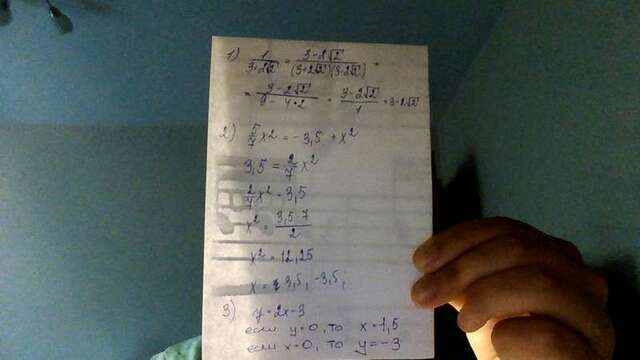 1) 1/(3+2√2) = (3-2√2)/((3+2√2)(3-2√2)) =
= (3-2√2)/(9-4·2) = (3-2√2)/1 = 3-2√2
2) 5/7 x² = -3,5 + x²
3,5 = 2/7 x²
2/7 x² = 3,5
x² = (3,5·7)/2
x² = 12,25
x = 3,5, -3,5;
3) y=2x-3
если y=0, то x=1,5
если x=0, то y=-3